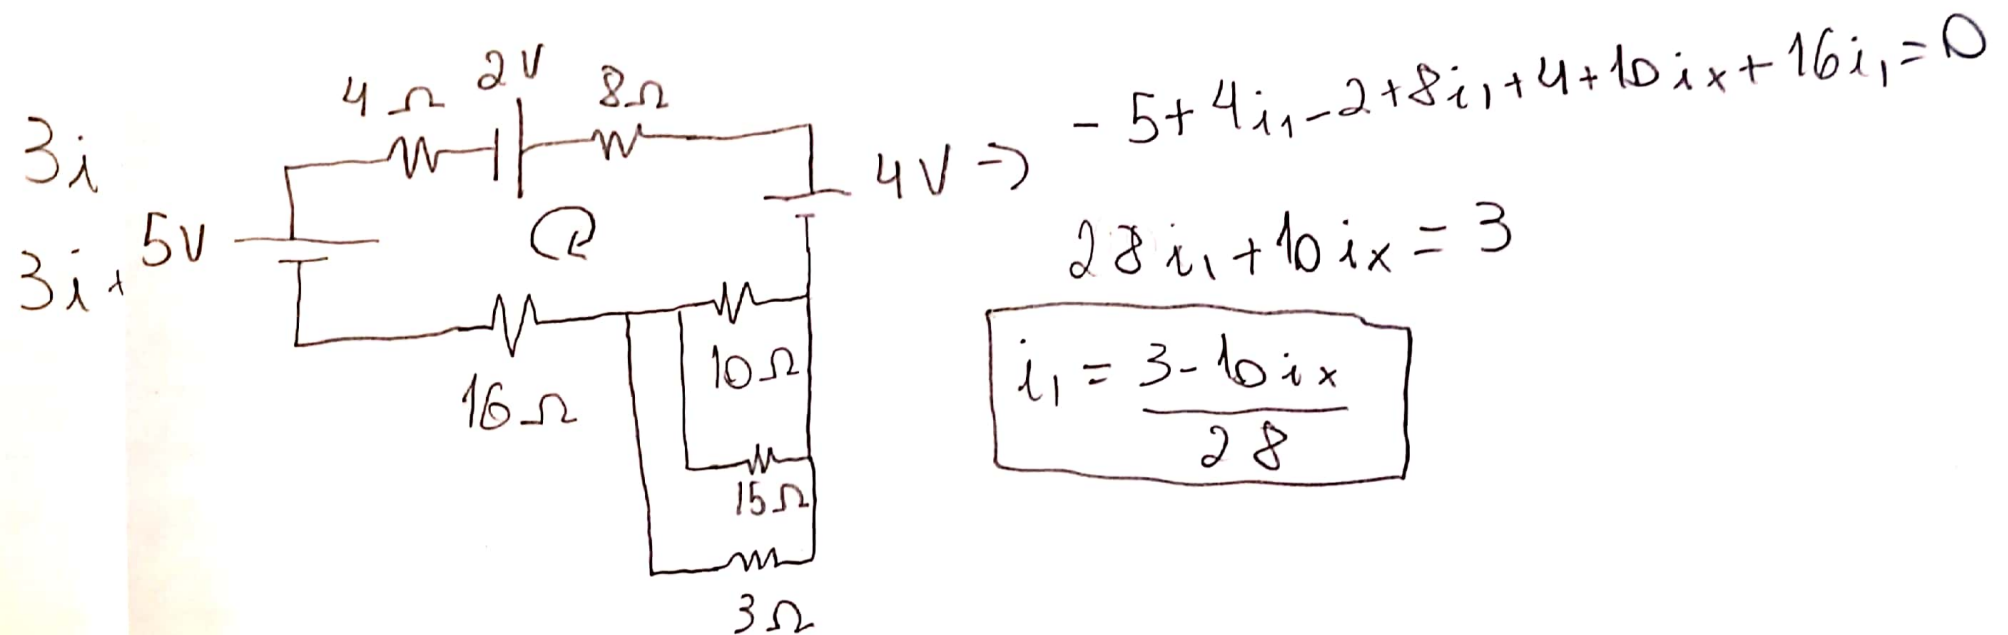 3i
3i+
5V
4Ω
2V
8Ω
4V ⇒
16Ω
10Ω
15Ω
3Ω
- 5 + 4i₁ - 2 + 8i₁ + 4 + 10ix + 16i₁ = 0
28i₁ + 10ix = 3
i₁ = 3 - 10ix
28